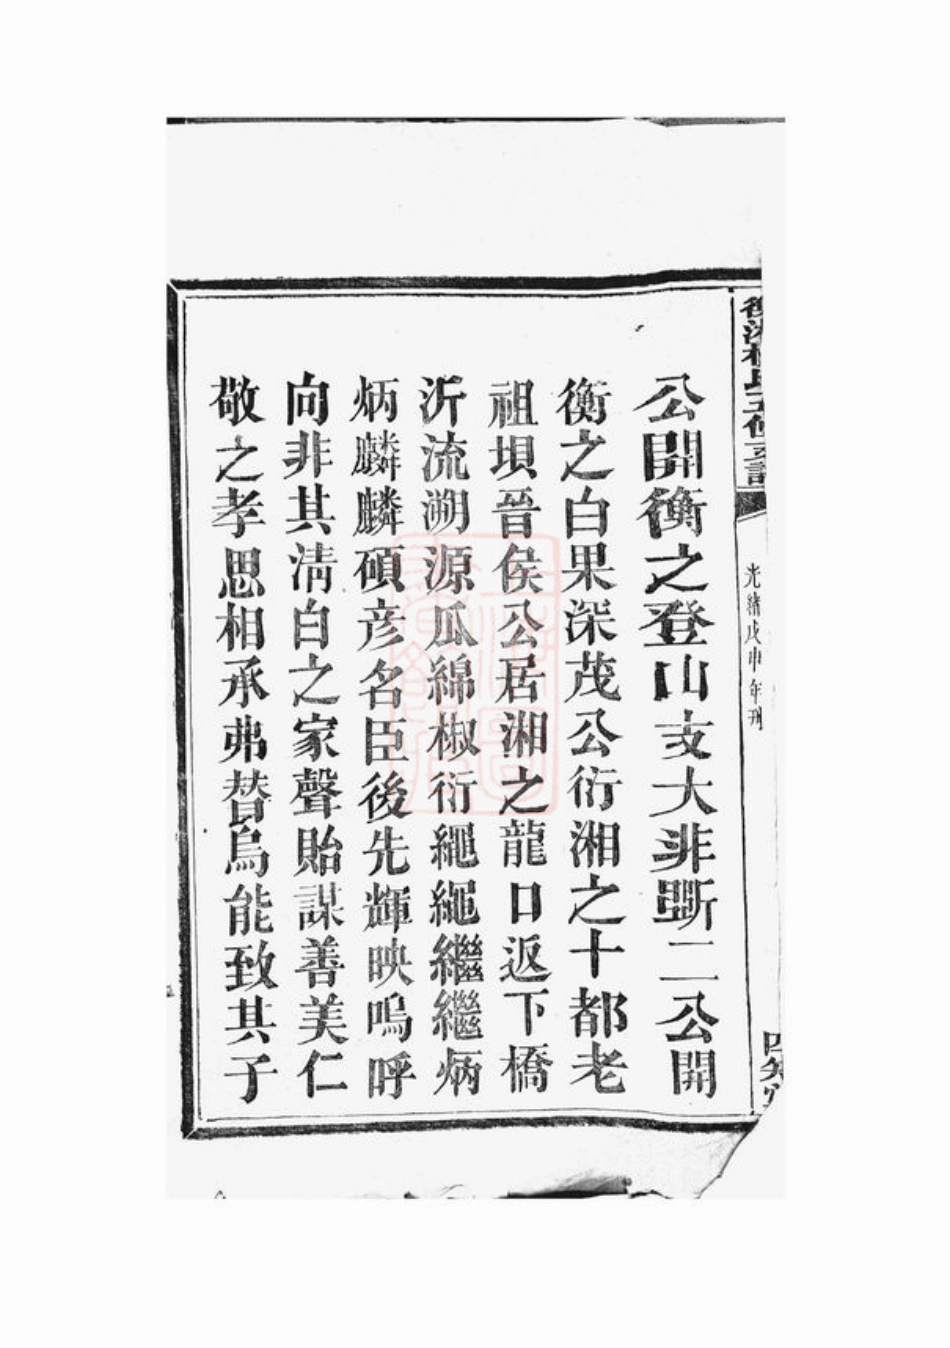 公開衡之登山支大非斷二公開
衡之白果深茂公衍湘之十都老
祖垻晉侯公居湘之龍口返下橋
沂流溯源瓜綿椒衍繩繩繼繼炳
炳麟麟碩彥名臣後先輝映嗚呼
向非其清白之家聲貽謀善美仁
敬之孝思相承弗替烏能致其子
光緒戊申年刊